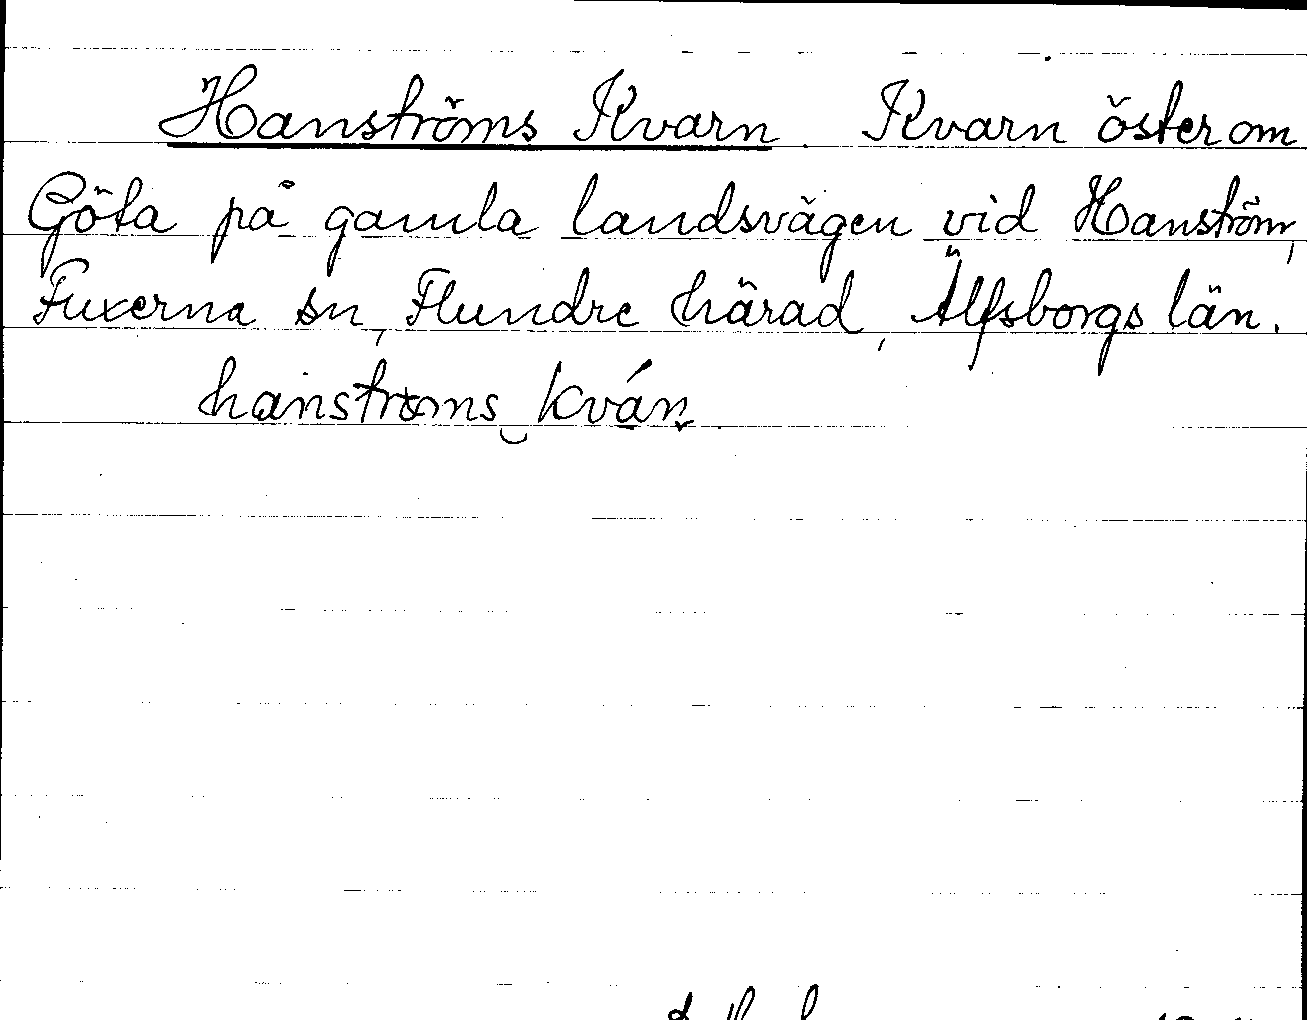 Hanströms Kvarn. Kvarn öster om
Göta på gamla landsvägen vid Hanström,
Fuxerna sn, Flundre härad, Älfsborgs län.
hanstroms kván